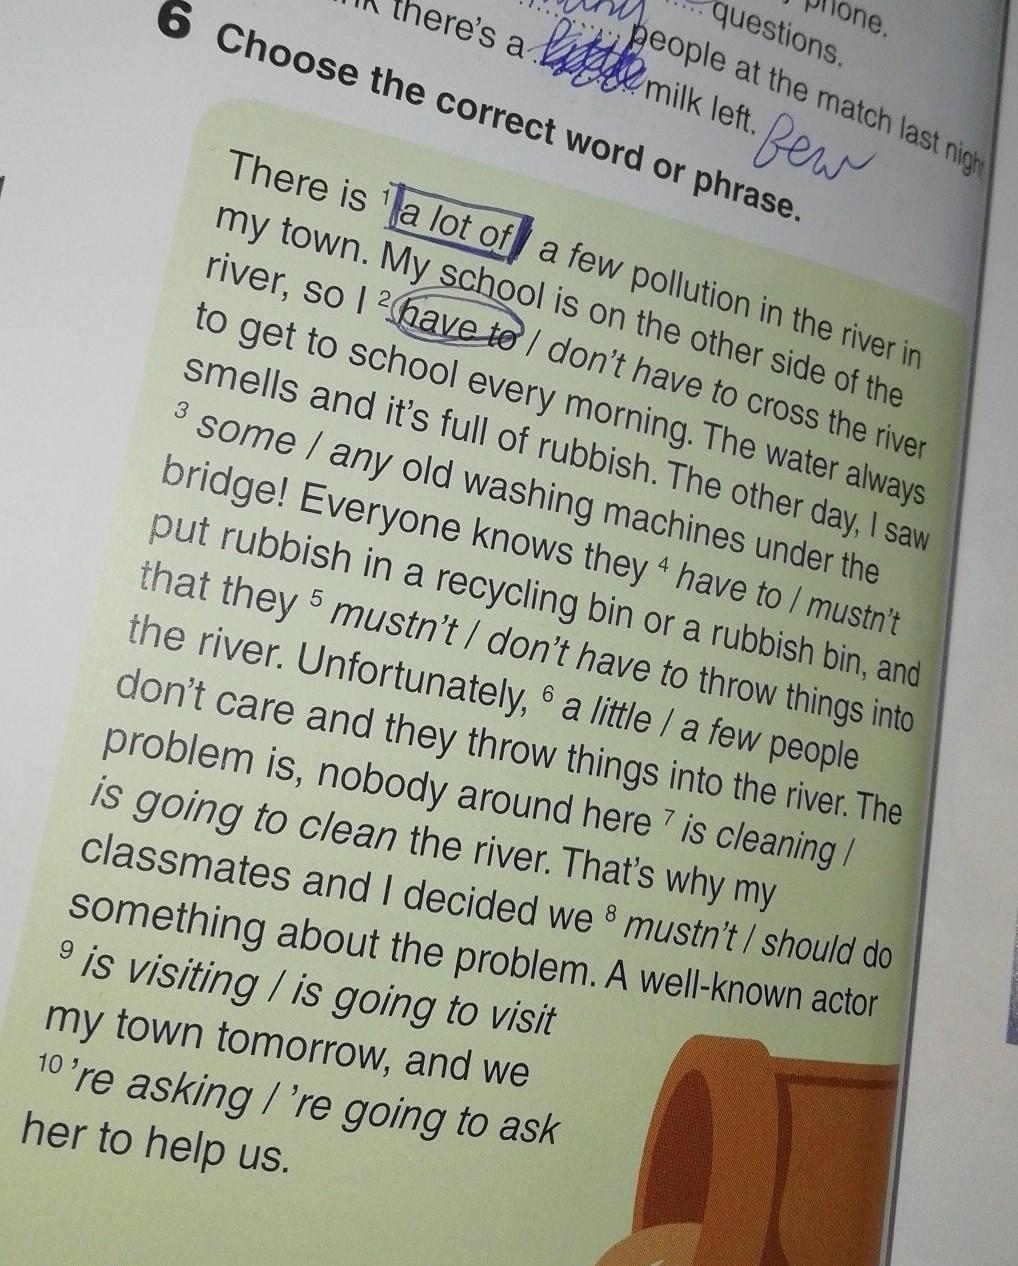 phone.
questions.
people at the match last night
there's a little milk left. Few
6 Choose the correct word or phrase.
There is 1 a lot of / a few pollution in the river in
my town. My school is on the other side of the
river, so I 2 have to / don't have to cross the river
to get to school every morning. The water always
smells and it's full of rubbish. The other day, I saw
3 some / any old washing machines under the
bridge! Everyone knows they 4 have to / mustn't
put rubbish in a recycling bin or a rubbish bin, and
that they 5 mustn't / don't have to throw things into
the river. Unfortunately, 6 a little / a few people
don't care and they throw things into the river. The
problem is, nobody around here 7 is cleaning /
is going to clean the river. That's why my
classmates and I decided we 8 mustn't / should do
something about the problem. A well-known actor
9 is visiting / is going to visit
my town tomorrow, and we
10 're asking / 're going to ask
her to help us.